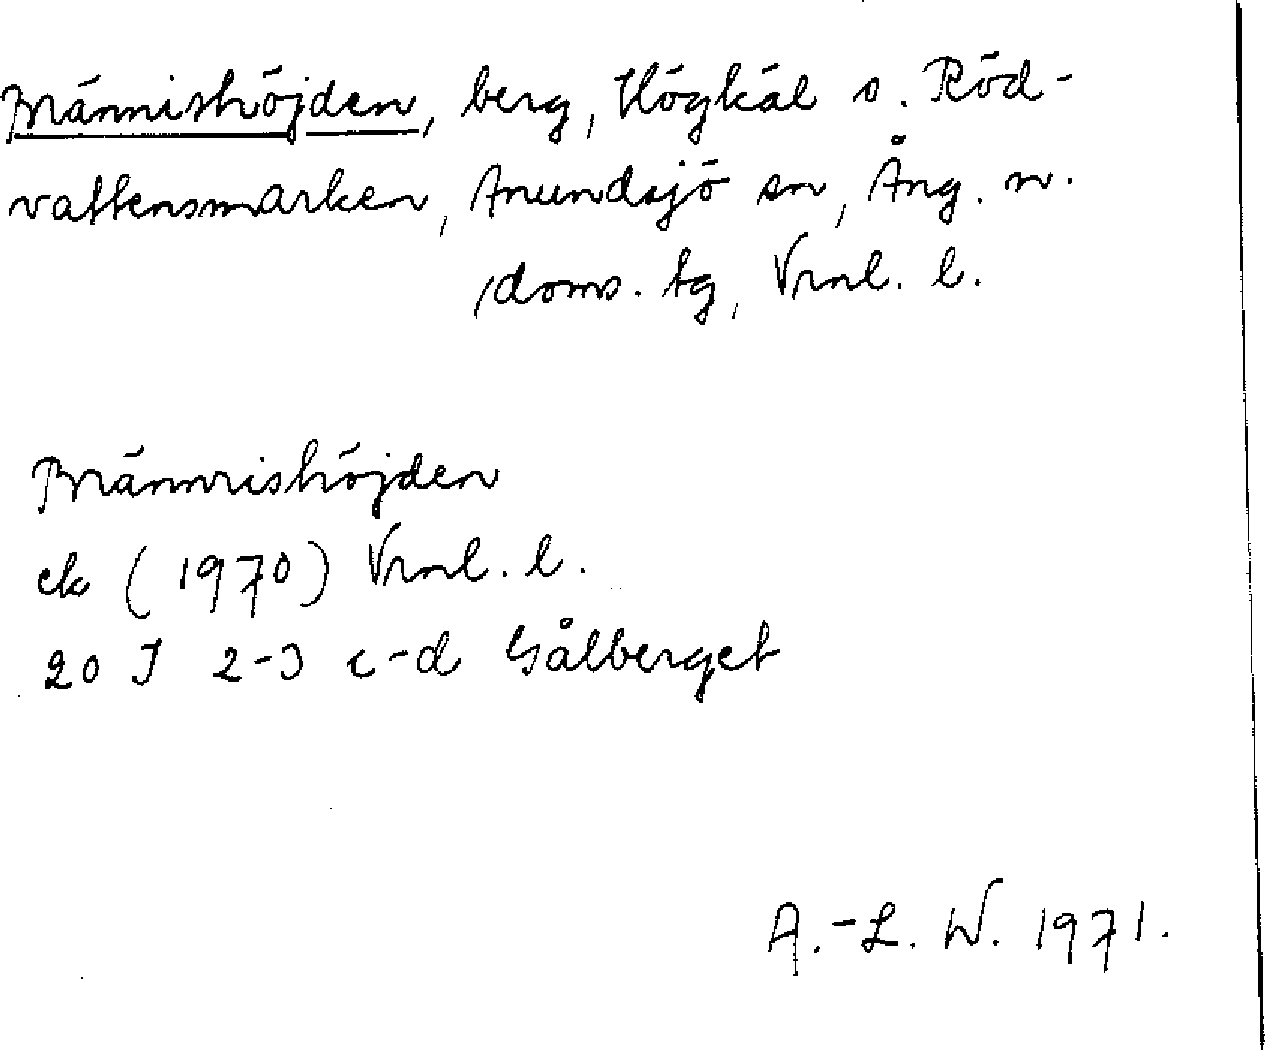 Brännishöjden, berg, Högkål o. Röd-
vattensmarken, Anundsjö sn, Ång. n.
/doms. tg, Vrml. l.
Brännrishöjden
ek (1970) Vrml. l.
20 J 2-3 c-d Gålberget
A.-L. W. 1971.